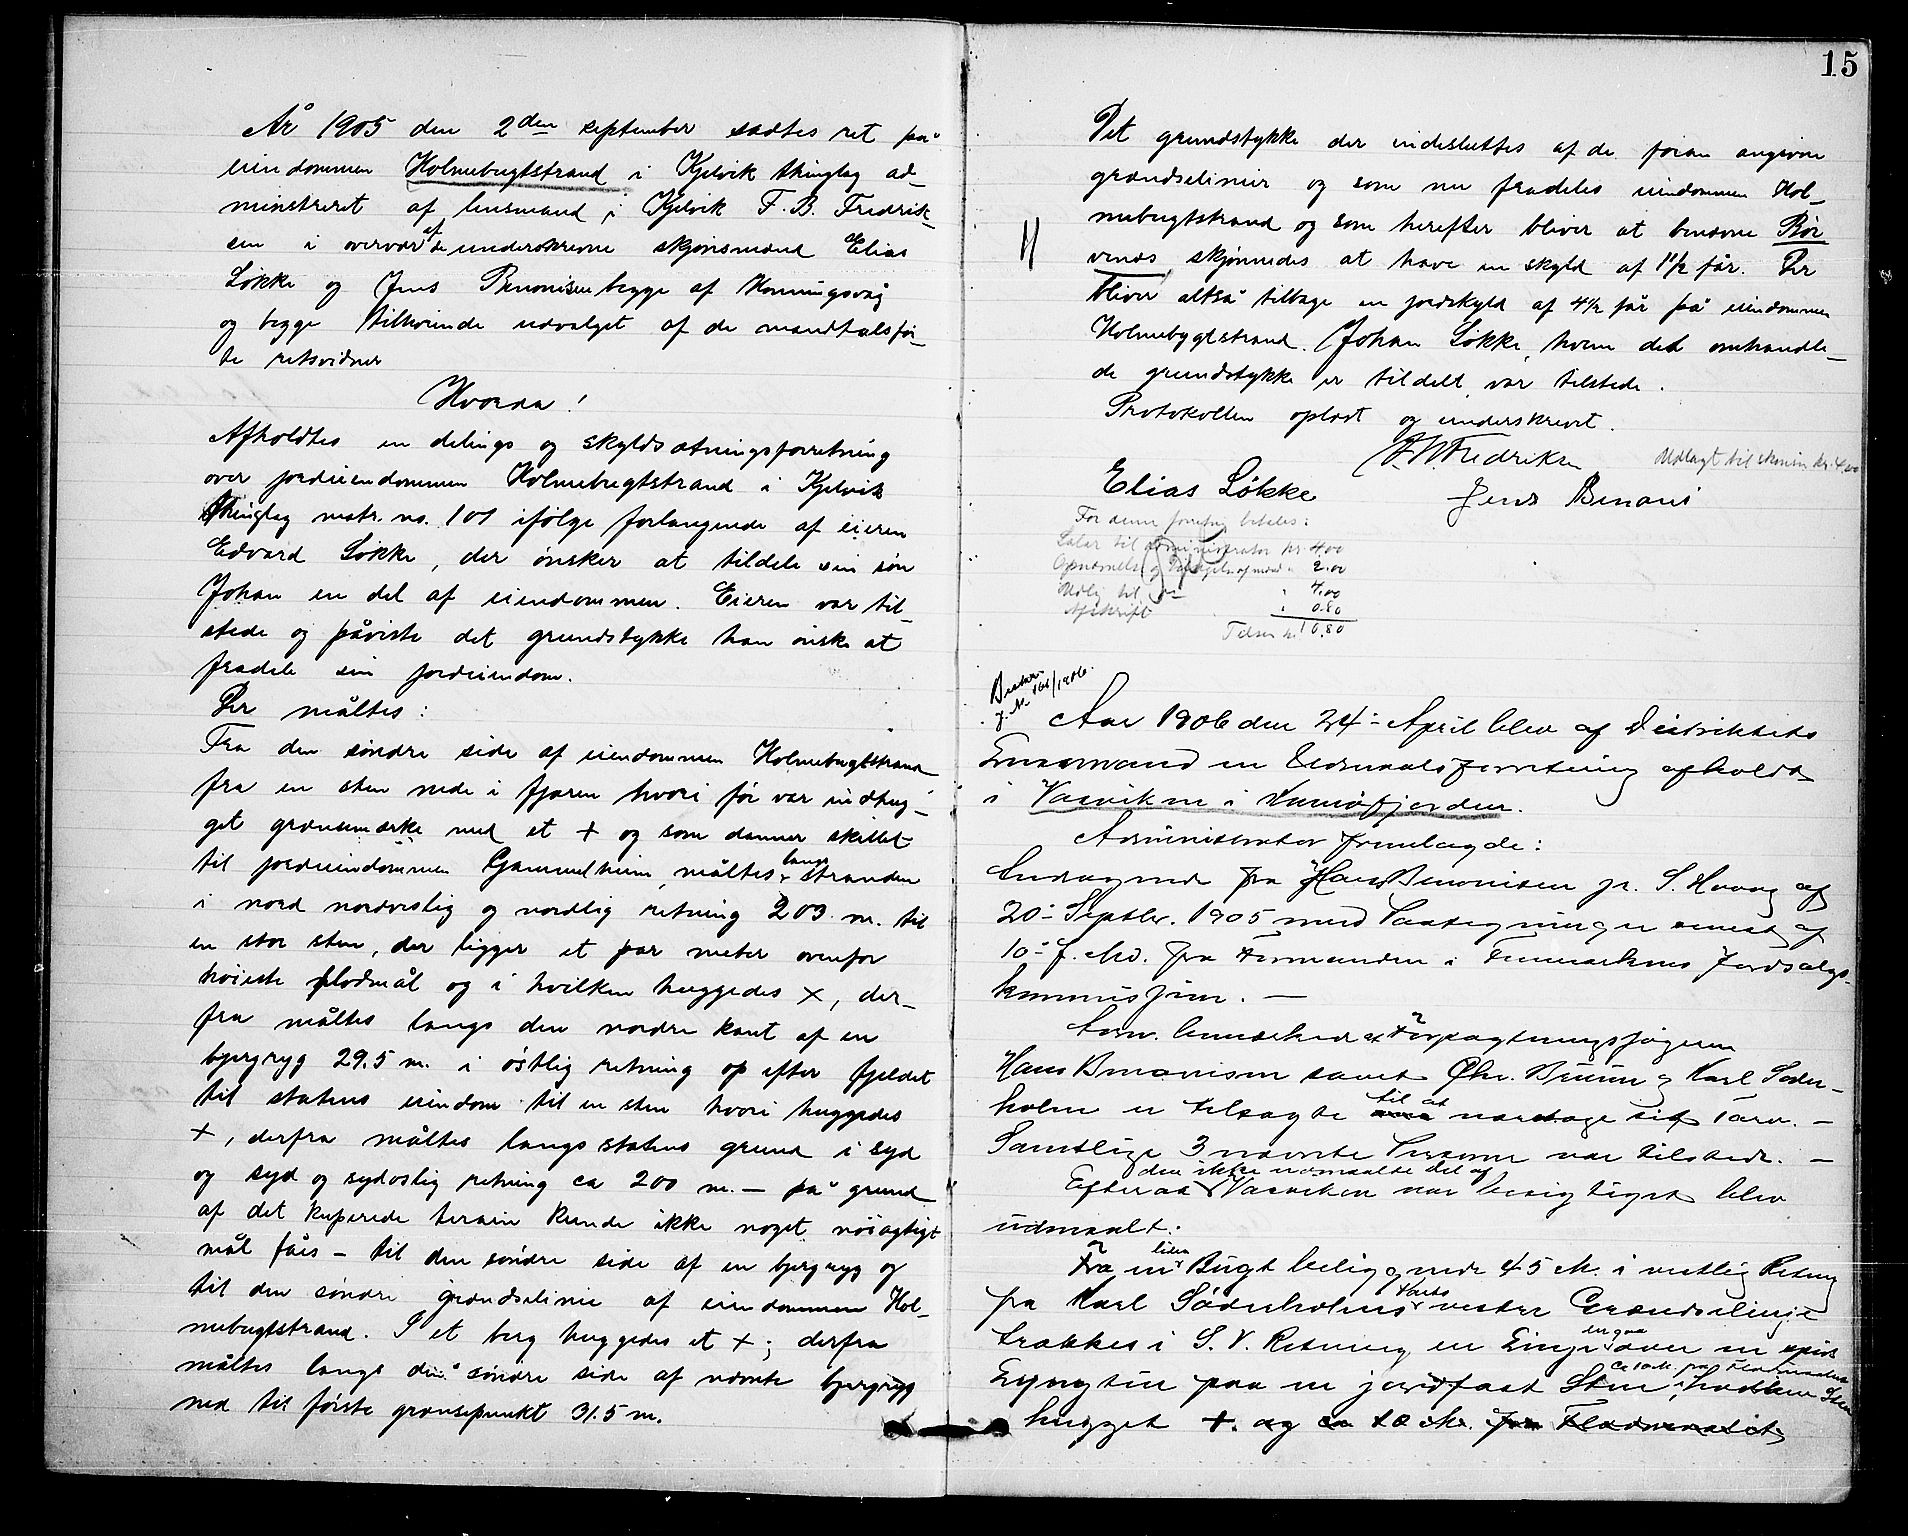 År 1905 den 2den september sattes ret på
eiendommen Holmebugtstrand i Kjelvik thinglag ad-
minstreret af lensmand i Kjelvik F. B. Fredrik-
sen i overvær af de underskrevne skjønsmænd Elias
Løkke og Jens Benonisen begge af Honningsvåg
og begge tilhørende udvalget af de mandtalsfør-
te retsvidner
Hvorda!
Afholdtes en delings og skyldsætningsforretning
over jordeiendommen Holmebugtstrand i Kjelvik
thinglag matr. no. 101 ifølge forlangende af eieren
Edvard Løkke, der ønsker at tildele sin søn
Johan en del af eiendommen. Eieren var til-
stede og påviste det grundstykke han ønsk at
fradele sin jordeiendom.
Der måltes:
Fra den søndre side af eiendommen Holmebugtstrand
fra en sten nede i fjæren hvori før var indhug-
get grænsemærke med et + og som danner skillet
til jordeiendommen Gammelheim, måltes langs stranden
i nord nordvestlig og nordlig retning 209 m. til
en stor sten, der ligger et par meter ovenfor
høieste flodmål og i hvilken huggedes +, der-
fra måltes langs den nordre kant af en
bjergryg 29.5 m. i østlig retning op efter fjeldet
til statens eiendom til en sten hvori huggedes
+, derfra måltes langs statens grund i syd
og syd og sydøstlig retning ca 200 m. — på grund
af det kuperede terrain kunde ikke noget nøiagtigt
mål fåes — til den søndre side af en bjergryg og
til den søndre grændselinie af eiendommen Hol-
mebugtstrand. I et berg huggedes et +; derfra
måltes langs den søndre side af nævnte bjergryg
ned til første grænsepunkt 31.5 m.
15
Det grundstykke der indesluttes af de foran angivne
grændselinier og som nu fradeles eiendommen Hol-
mebugtstrand og som herefter bliver at benævne Rør
venes skjønnedes at have en skyld af 1½ før. Der
bliver altså tilbage en jordskyld af 4½ før på eiendommen
Holmebygtstrand. Johan Løkke, hvem det omhandle-
de grundstykke er tildelt var tilstede.
Protokollen oplæst og underskrevet.
F. B. Fredriksen
Udlagt til skønsm kr. 4.00
Elias Løkke Jens Benoni
For denne forretng betales:
Salær til administrator kr 4.00
Opnævnelse og 2.00
Udlæg til 4.00
Afskrift 0.80
Tilsm kr. 10.80
J. No. 161/1906.
Aar 1906 den 24- April blev af Distriktets
Lensmand en Udmaalsforretning afholdt
i Vasviken i Kamøfjorden.
Administrator fremlagde:
Andragende fra Hans Benonisen pr. S. Hvaag af
20- Septbr. 1905 med Paategninger senest af
10- f. Md. fra Formanden i Finmarkens Jordsalgs-
kommission. —
Adm. bemærkede at Forpagtningssøgeren
Hans Benonisen samt Chr. Bruun og Karl Søder-
holm er tilsagte til at varetage sit Tarv. —
Samtlige 3 nævnte Personer var tilstede. —
Efterat den ikke udmaalte del af Vasviken var besigtiget blev
udmaalt:
Fra en liden Bugt beliggende 45 M. i vestlig Retng
fra Karl Søderholms Tomts vestre Grændselinje
trækkes i S. V. Retning en Linje over en
Lyngtue paa en jordfast Sten i hvilken Sten
hugget +. og ca 10 M. fra Flodmaalet